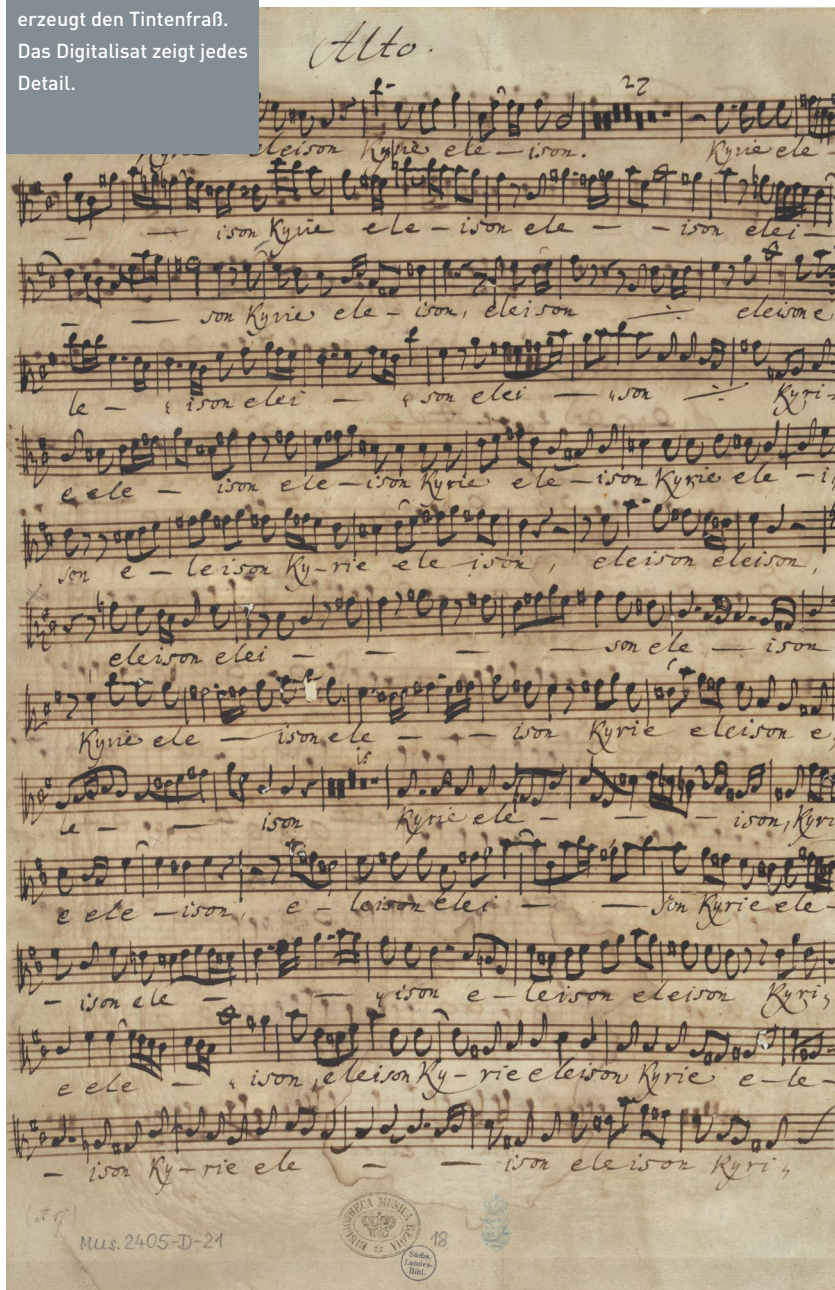 erzeugt den Tintenfraß.
Das Digitalisat zeigt jedes
Detail.
Alto.
22
Kyrie eleison Kyrie ele — ison. Kyrie ele -
— — ison Kyrie ele — ison ele — — ison elei —
— — son Kyrie ele — ison, eleison eleison e
le — ison elei — son elei — son Kyri-
e ele — ison ele — ison Kyrie ele — ison Kyrie ele — i,
son e — leison Ky — rie ele ison, eleison eleison,
eleison elei — — — — son ele — ison
Kyrie ele — ison ele — — — ison Kyrie eleison e,
is
le — — ison Kyrie ele — — — ison, Kyri
e ele — ison, e — leison elei — — son Kyrie ele -
— ison ele — — ison e — leison eleison Kyri,
e ele — ison, eleison Ky — rie eleison Kyrie e — le -
— ison Ky — rie ele — — ison eleison Kyri,
BIBLIOTHECA MUSICA REGIA
Mus. 2405-D-21
18
Sächs.
Landes-
Bibl.